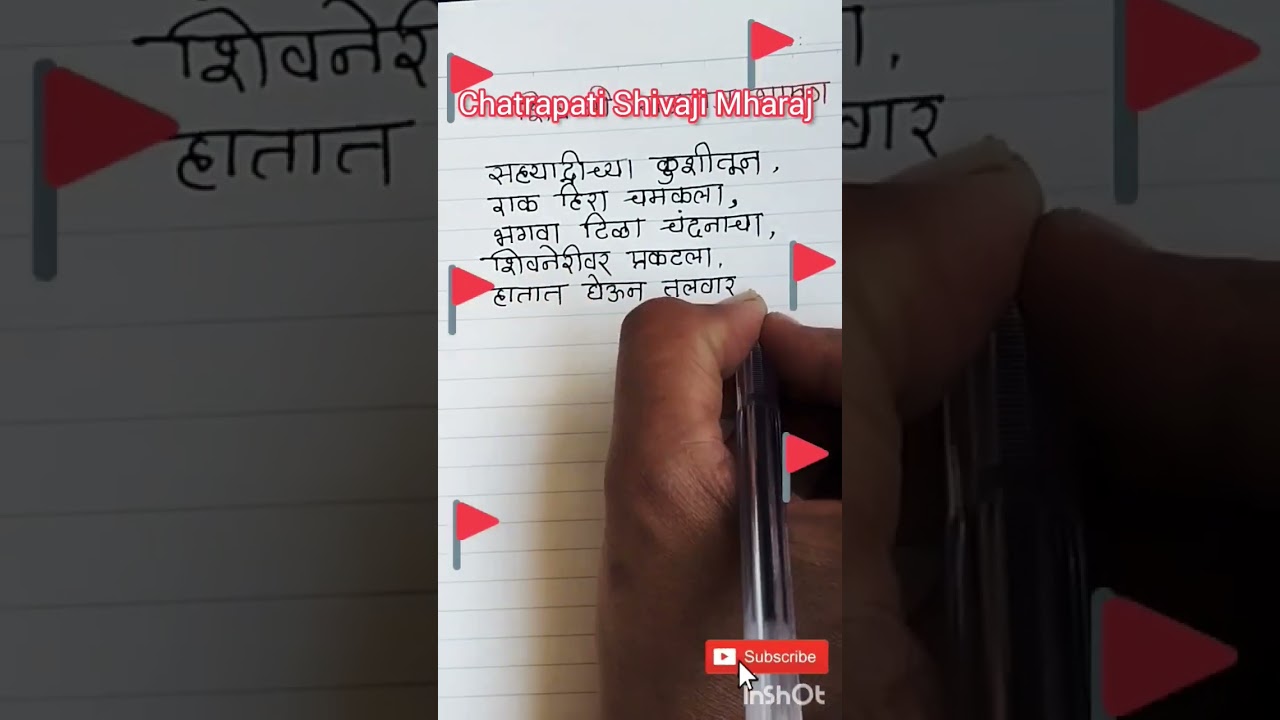 Chatrapati Shivaji Mharaj
सह्याद्रीच्या कुशीतून,
एक हिरा चमकला,
भगवा टिळा चंदनाचा,
शिवनेरीवर प्रकटला,
हातात घेऊन तलवार
Subscribe
InShOt